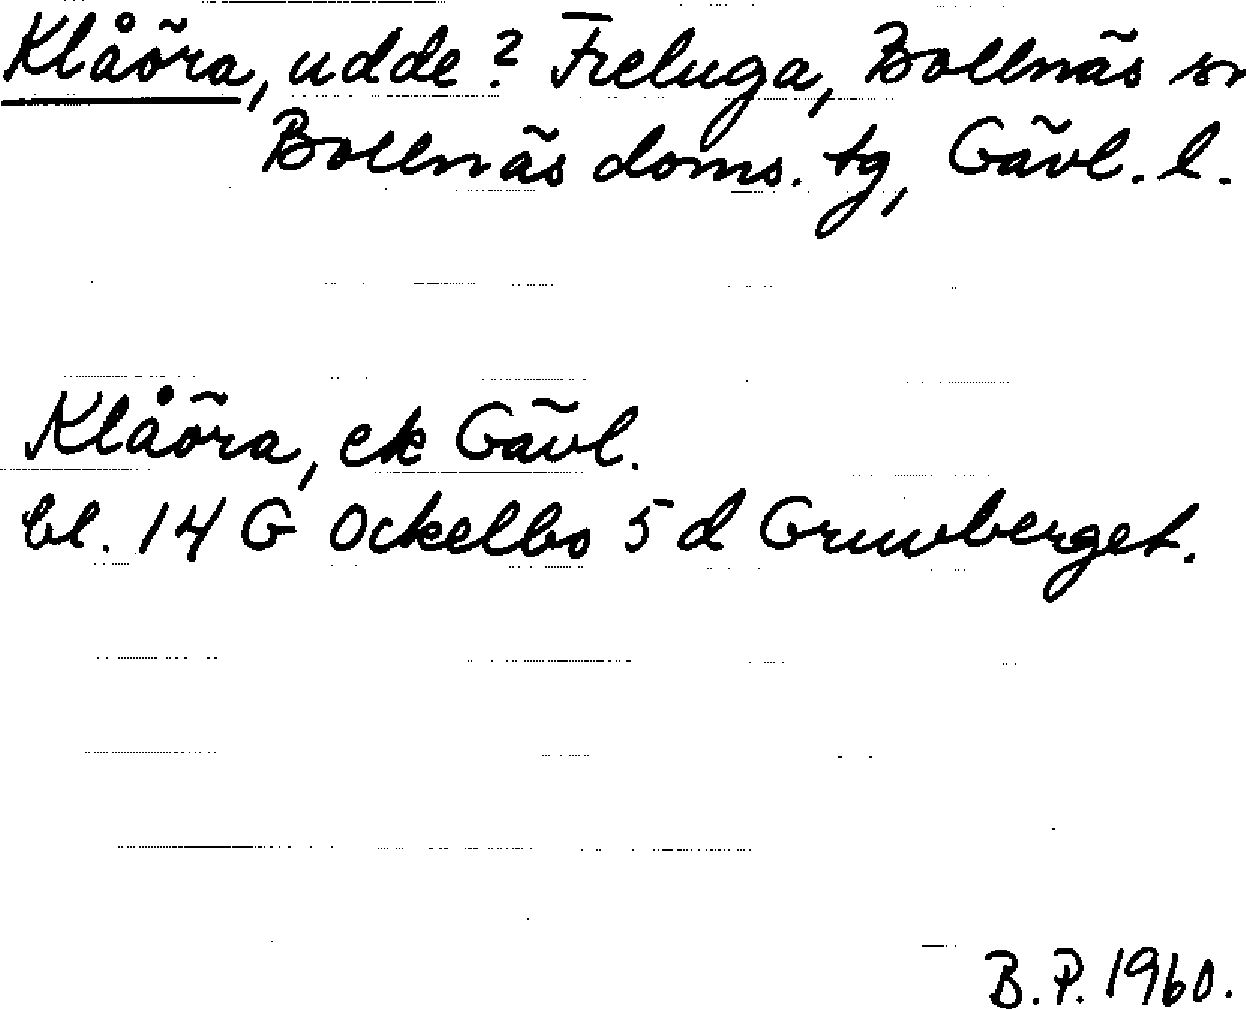 Klåöra, udde? Freluga, Bollnäs sn
Bollnäs doms. tg, Gävl. l.
Klåöra, ek Gävl.
bl. 14 G Ockelbo 5 d Gruvberget.
B. P. 1960.